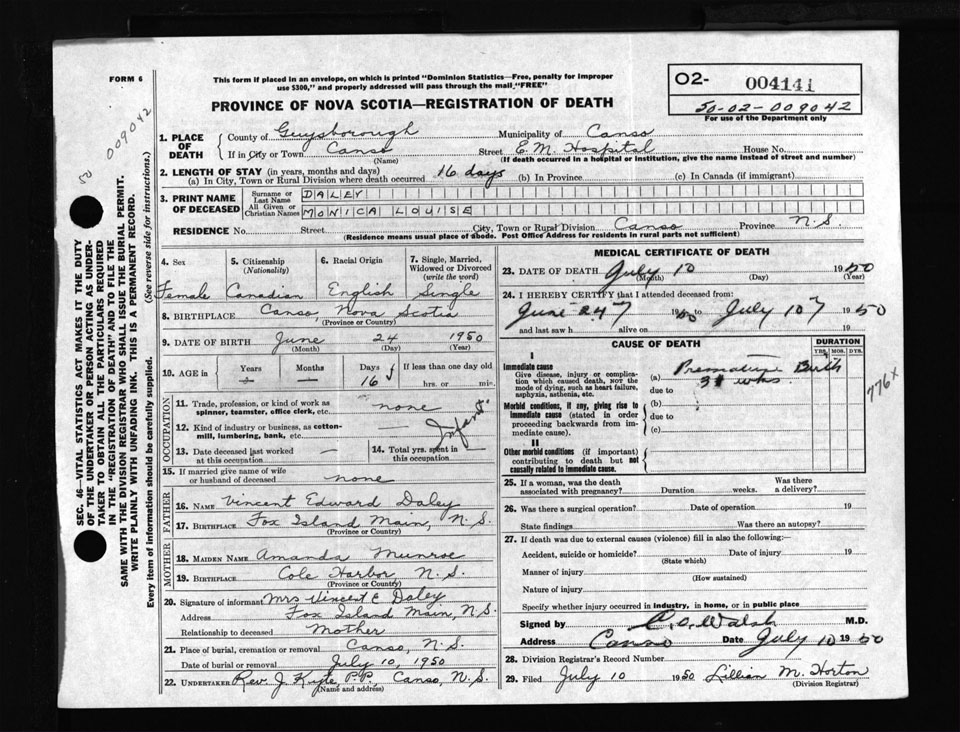 FORM 6
This form if placed in an envelope, on which is printed "Dominion Statistics—Free, penalty for improper
use $300," and properly addressed will pass through the mail "FREE"
O2- 004141
50-02-009042
For use of the Department only
PROVINCE OF NOVA SCOTIA—REGISTRATION OF DEATH
009042
50
SEC. 46—VITAL STATISTICS ACT MAKES IT THE DUTY
OF THE UNDERTAKER OR PERSON ACTING AS UNDER-
TAKER TO OBTAIN ALL THE PARTICULARS REQUIRED
IN THE "REGISTRATION OF DEATH" AND TO FILE THE
SAME WITH THE DIVISION REGISTRAR WHO SHALL ISSUE THE BURIAL PERMIT.
WRITE PLAINLY WITH UNFADING INK. THIS IS A PERMANENT RECORD.
Every item of information should be carefully supplied. (See reverse side for instructions.)
1. PLACE OF DEATH
County of Guysborough Municipality of Canso
If in City or Town Canso Street E. M. Hospital House No.
(Name) (If death occurred in a hospital or institution, give the name instead of street and number)
2. LENGTH OF STAY (in years, months and days)
(a) In City, Town or Rural Division where death occurred 16 days (b) In Province (c) In Canada (if immigrant)
3. PRINT NAME OF DECEASED
Surname or Last Name DALEY
All Given or Christian Names MONICA LOUISE
RESIDENCE No. Street City, Town or Rural Division Canso Province N.S
(Residence means usual place of abode. Post Office Address for residents in rural parts not sufficient)
4. Sex Female
5. Citizenship (Nationality) Canadian
6. Racial Origin English
7. Single, Married, Widowed or Divorced (write the word) Single
8. BIRTHPLACE Canso, Nova Scotia
(Province or Country)
9. DATE OF BIRTH June 24 1950
(Month) (Day) (Year)
10. AGE in Years - Months - Days 16 If less than one day old hrs. or min.
OCCUPATION
11. Trade, profession, or kind of work as spinner, teamster, office clerk, etc. none
12. Kind of industry or business, as cotton-mill, lumbering, bank, etc. Infant
13. Date deceased last worked at this occupation —
14. Total yrs. spent in this occupation
15. If married give name of wife or husband of deceased none
FATHER
16. NAME Vincent Edward Daley
17. BIRTHPLACE Fox Island Main, N.S.
MOTHER
18. MAIDEN NAME Amanda Munroe
19. BIRTHPLACE Cole Harbor N.S.
(Province or Country)
20. Signature of informant Mrs Vincent E Daley
Address Fox Island Main, N.S.
Relationship to deceased Mother
21. Place of burial, cremation or removal Canso, N.S.
Date of burial or removal July 10, 1950
22. UNDERTAKER Rev. J. Kyte P.P., Canso, N.S.
(Name and address)
MEDICAL CERTIFICATE OF DEATH
23. DATE OF DEATH July 10 1950
(Month) (Day) (Year)
24. I HEREBY CERTIFY that I attended deceased from:
June 24 1950 to July 10 1950
and last saw h alive on 19
CAUSE OF DEATH
DURATION
YRS. MOS. DYS.
I
Immediate cause
Give disease, injury or complication which caused death, NOT the mode of dying, such as heart failure, asphyxia, asthenia, etc.
(a) Premature Birth
due to
Morbid conditions, if any, giving rise to immediate cause (stated in order proceeding backwards from immediate cause).
(b)
due to
(c)
II
Other morbid conditions (if important) contributing to death but not causally related to immediate cause.
776x
25. If a woman, was the death associated with pregnancy? Duration weeks. Was there a delivery?
26. Was there a surgical operation? Date of operation 19
State findings Was there an autopsy?
27. If death was due to external causes (violence) fill in also the following:-
Accident, suicide or homicide? Date of injury 19
(State which)
Manner of injury
(How sustained)
Nature of injury
Specify whether injury occurred in industry, in home, or in public place
Signed by Walsh M.D.
Address Canso Date July 10 1950
28. Division Registrar's Record Number
29. Filed July 10 1950 Lillian M. Horton
(Division Registrar)